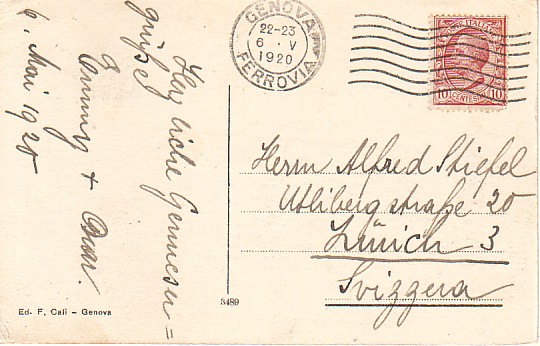 GENOVA
22-23
6 · V
1920
FERROVIA
POSTE ITALIANE
10 CENTESIMI 10
Herzliche Genueser=
grüße
Emmy + Oscar.
6. Mai 1920
Herrn Alfred Stiefel
Utlibergstraße 20
Zürich 3
Svizzera
3489
Ed. F. Cali - Genova